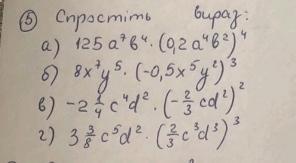 ⑤ Спростіть вираз:
а) 125 a⁷ b⁴ · (0,2 a⁴ b²)⁴
б) 8x⁷y⁵ · (-0,5x⁵y²)³
в) -2 1/4 c⁴d² · (-2/3 cd²)²
г) 3 3/8 c⁵d² · (2/3 c³d³)³